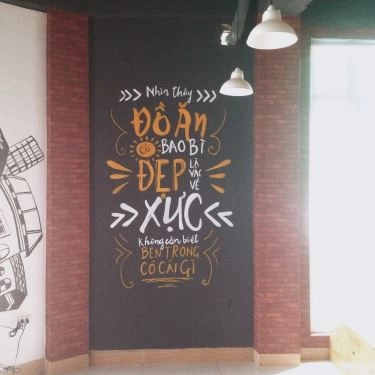 Nhìn thấy
ĐỒ ĂN
CÓ BAO BÌ
ĐẸP LÀ VÁC VỀ
XỰC
Không cần biết
BÊN TRONG
CÓ CÁI GÌ